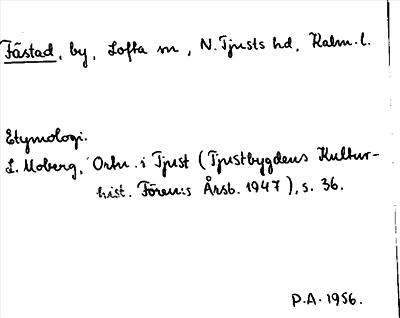 Fästad, by, Lofta sn, N. Tjusts hd, Kalm. l.
Etymologi.
L. Moberg, Ortn. i Tjust (Tjustbygdens Kultur-
hist. Fören:s Årsb. 1947), s. 36.
P.A. 1956.